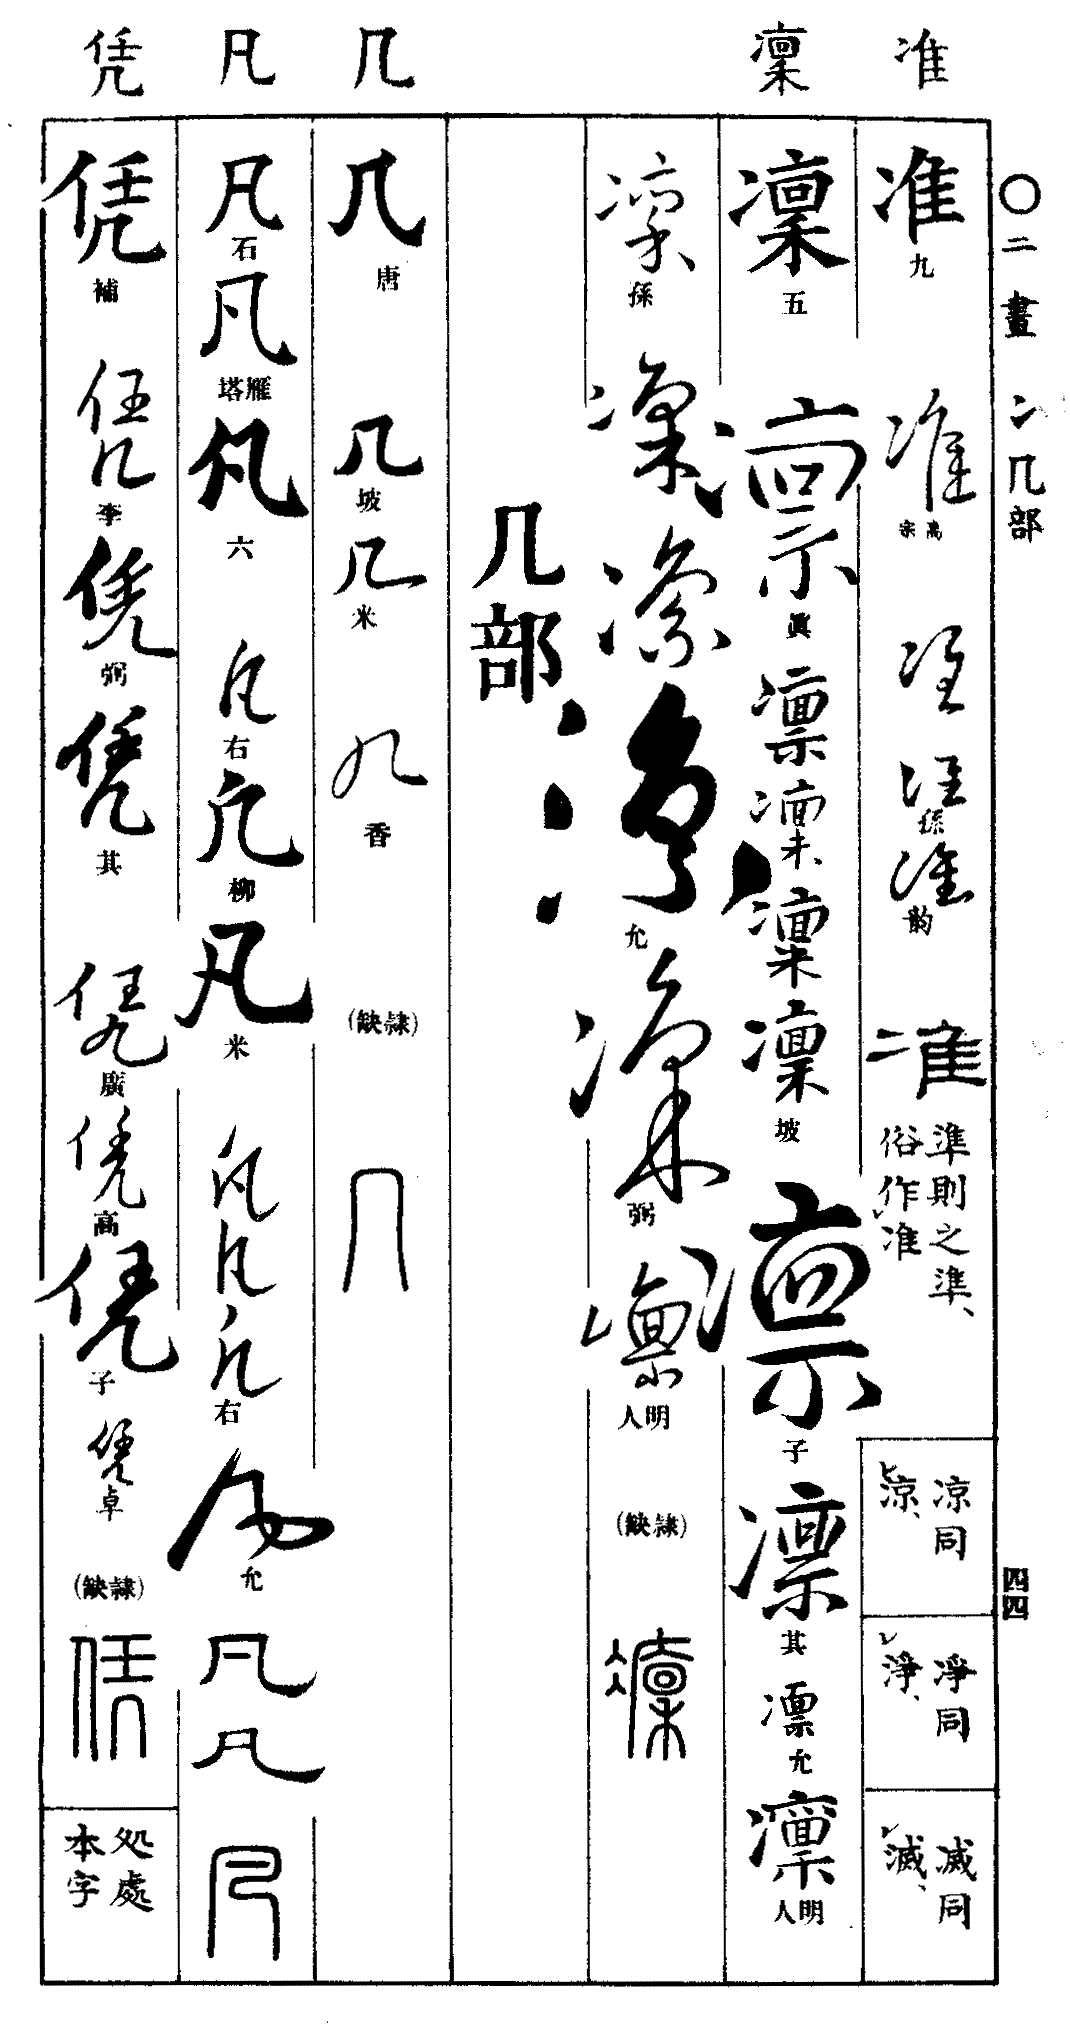 ○二畫 冫几部
四四
准
准九
准高宗
准
准孫
准韵
准
準則之準、
俗作准
凉同
涼、
凈同
淨、
㓕同
滅、
凜
凜五
凜眞
凜
凜
凜
凜坡
凜子
凜其
凜允
凜明人
凜孫
凜
凜
凜允
凜弼
凜明人
(隷缺)
凜
几部
几
几唐
几坡
几米
几香
(隷缺)
几
凡
凡石
凡雁塔
凡六
凡右
凡柳
凡米
凡
凡
凡右
凡允
凡
凡
凡
凭
凭補
凭李
凭弼
凭其
凭廣
凭高
凭子
凭卓
(隷缺)
凭
処處
本字